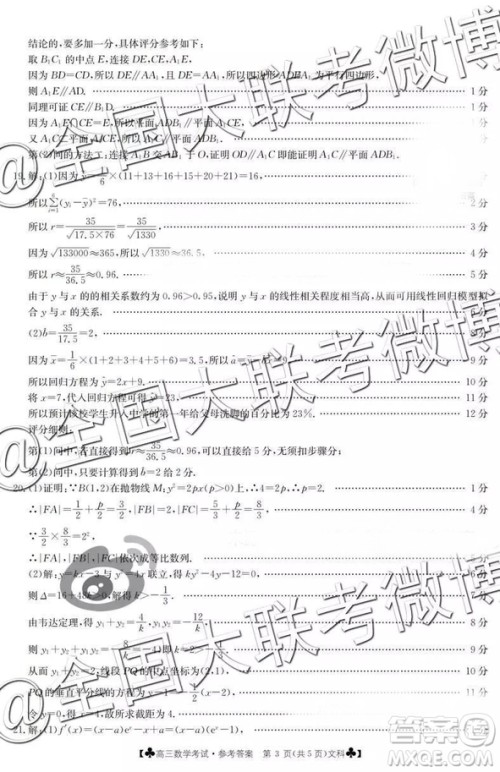 结论的,要多加一分,具体评分参考如下:
取 B₁C₁ 的中点 E,连接 DE,CE,A₁E,
因为 BD=CD,所以 DE∥AA₁,且 DE=AA₁,所以四边形 ADEA₁ 为平行四边形,
则 A₁E∥AD. 1分
同理可证 CE∥B₁D. 1分
因为 A₁E∩CE=E,所以平面 ADB₁∥平面 A₁CE, 1分
又 A₁C⊂平面 A₁CE,所以 A₁C∥平面 ADB₁. 1分
19.解:(1)因为 y̅=1/6×(11+13+16+15+20+21)=16, 1分
所以 (yᵢ-y̅)²=76, 2分
所以 r=35/√(17.5×76)=35/√1330, 3分
因为 √133000≈365,所以 √1330≈36.5, 4分
所以 r≈35/36.5≈0.96. 5分
由于 y 与 x 的的相关系数约为 0.96>0.95,说明 y 与 x 的线性相关程度相当高,从而可用线性回归模型拟
合 y 与 x 的关系. 6分
(2)b̂=35/17.5=2,
因为 x̅=1/6×(1+2+3+4+5+6)=3.5,所以 9分
所以回归方程为 ŷ=2x+9. 10分
将 x=7,代入回归方程可得 ŷ=23. 11分
所以预计该校学生升入中学的第一年给父母洗脚的百分比为 23%. 12分
评分细则:
第(1)问中,若直接得到 r≈35/36.5≈0.96,可以直接给 5 分,无须扣步骤分;
第(2)问中,只要计算得到 b̂=2 给 2 分.
20.(1)证明:∵B(1,2)在抛物线 M:y²=2px(p>0)上,∴4=2p,∴p=2. 1分
∴|FA|=1/2+p/2=3/2,|FB|=2,|FC|=5/3+p/2=8/3, 4分
∵3/2×8/3=2²,
∴|FA|,|FB|,|FC|成等比数列. 5分
(2)解:y=kx-3 与 y²=4x 联立,得 ky²-4y-12=0, 6分
则 Δ=16+48k>0,解得 k>-1/3. 7分
由韦达定理,得 y₁+y₂=4/k,y₁y₂=-12/k. 8分
从而 y₁+y₂=2,线段 PQ 的中点坐标为(2,1), 10分
PQ 的垂直平分线的方程为 y-1=-1/2(x-2), 11分
21.解:(1)f′(x)=(x-a)eˣ-x+a=(x-a)(eˣ-1),
♣高三数学考试·参考答案 第 3 页(共 5 页)文科♣
@全国大联考微博
@全国大联考微博
@全国大联考微博